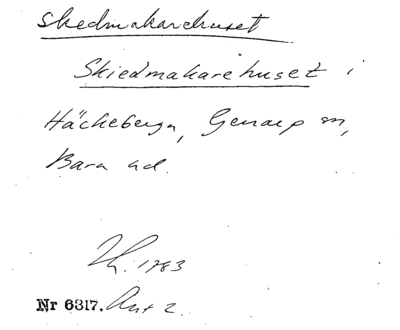 Skedmakarehuset
Skiedmakarehuset i
Häckeberga, Genarp sn,
Bara hd.
1783
Nr 6317. Ant 2.